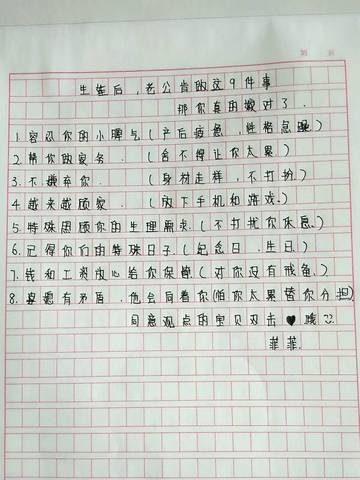 生雀后，老公肯做这9件事
那你真的嫩对了．
1．容忍你的小脾气（产后疲惫，性格急躁）
2．精你做家务．（舍不得让你太累）
3．不嫌弃你．（身材走样，不打扮）
4．越来越顾家．（放下手机和游戏）
5．特殊照顾你的生理需求．（不打扰你休息）
6．记得你们的特殊日子．（纪念日．生日）
7．钱和工资放心给你保管（对你没有戒备）
8．婆媳有矛盾．也会向着你（怕你太累替你分担）
同意观点的宝贝双击❤
菲菲．